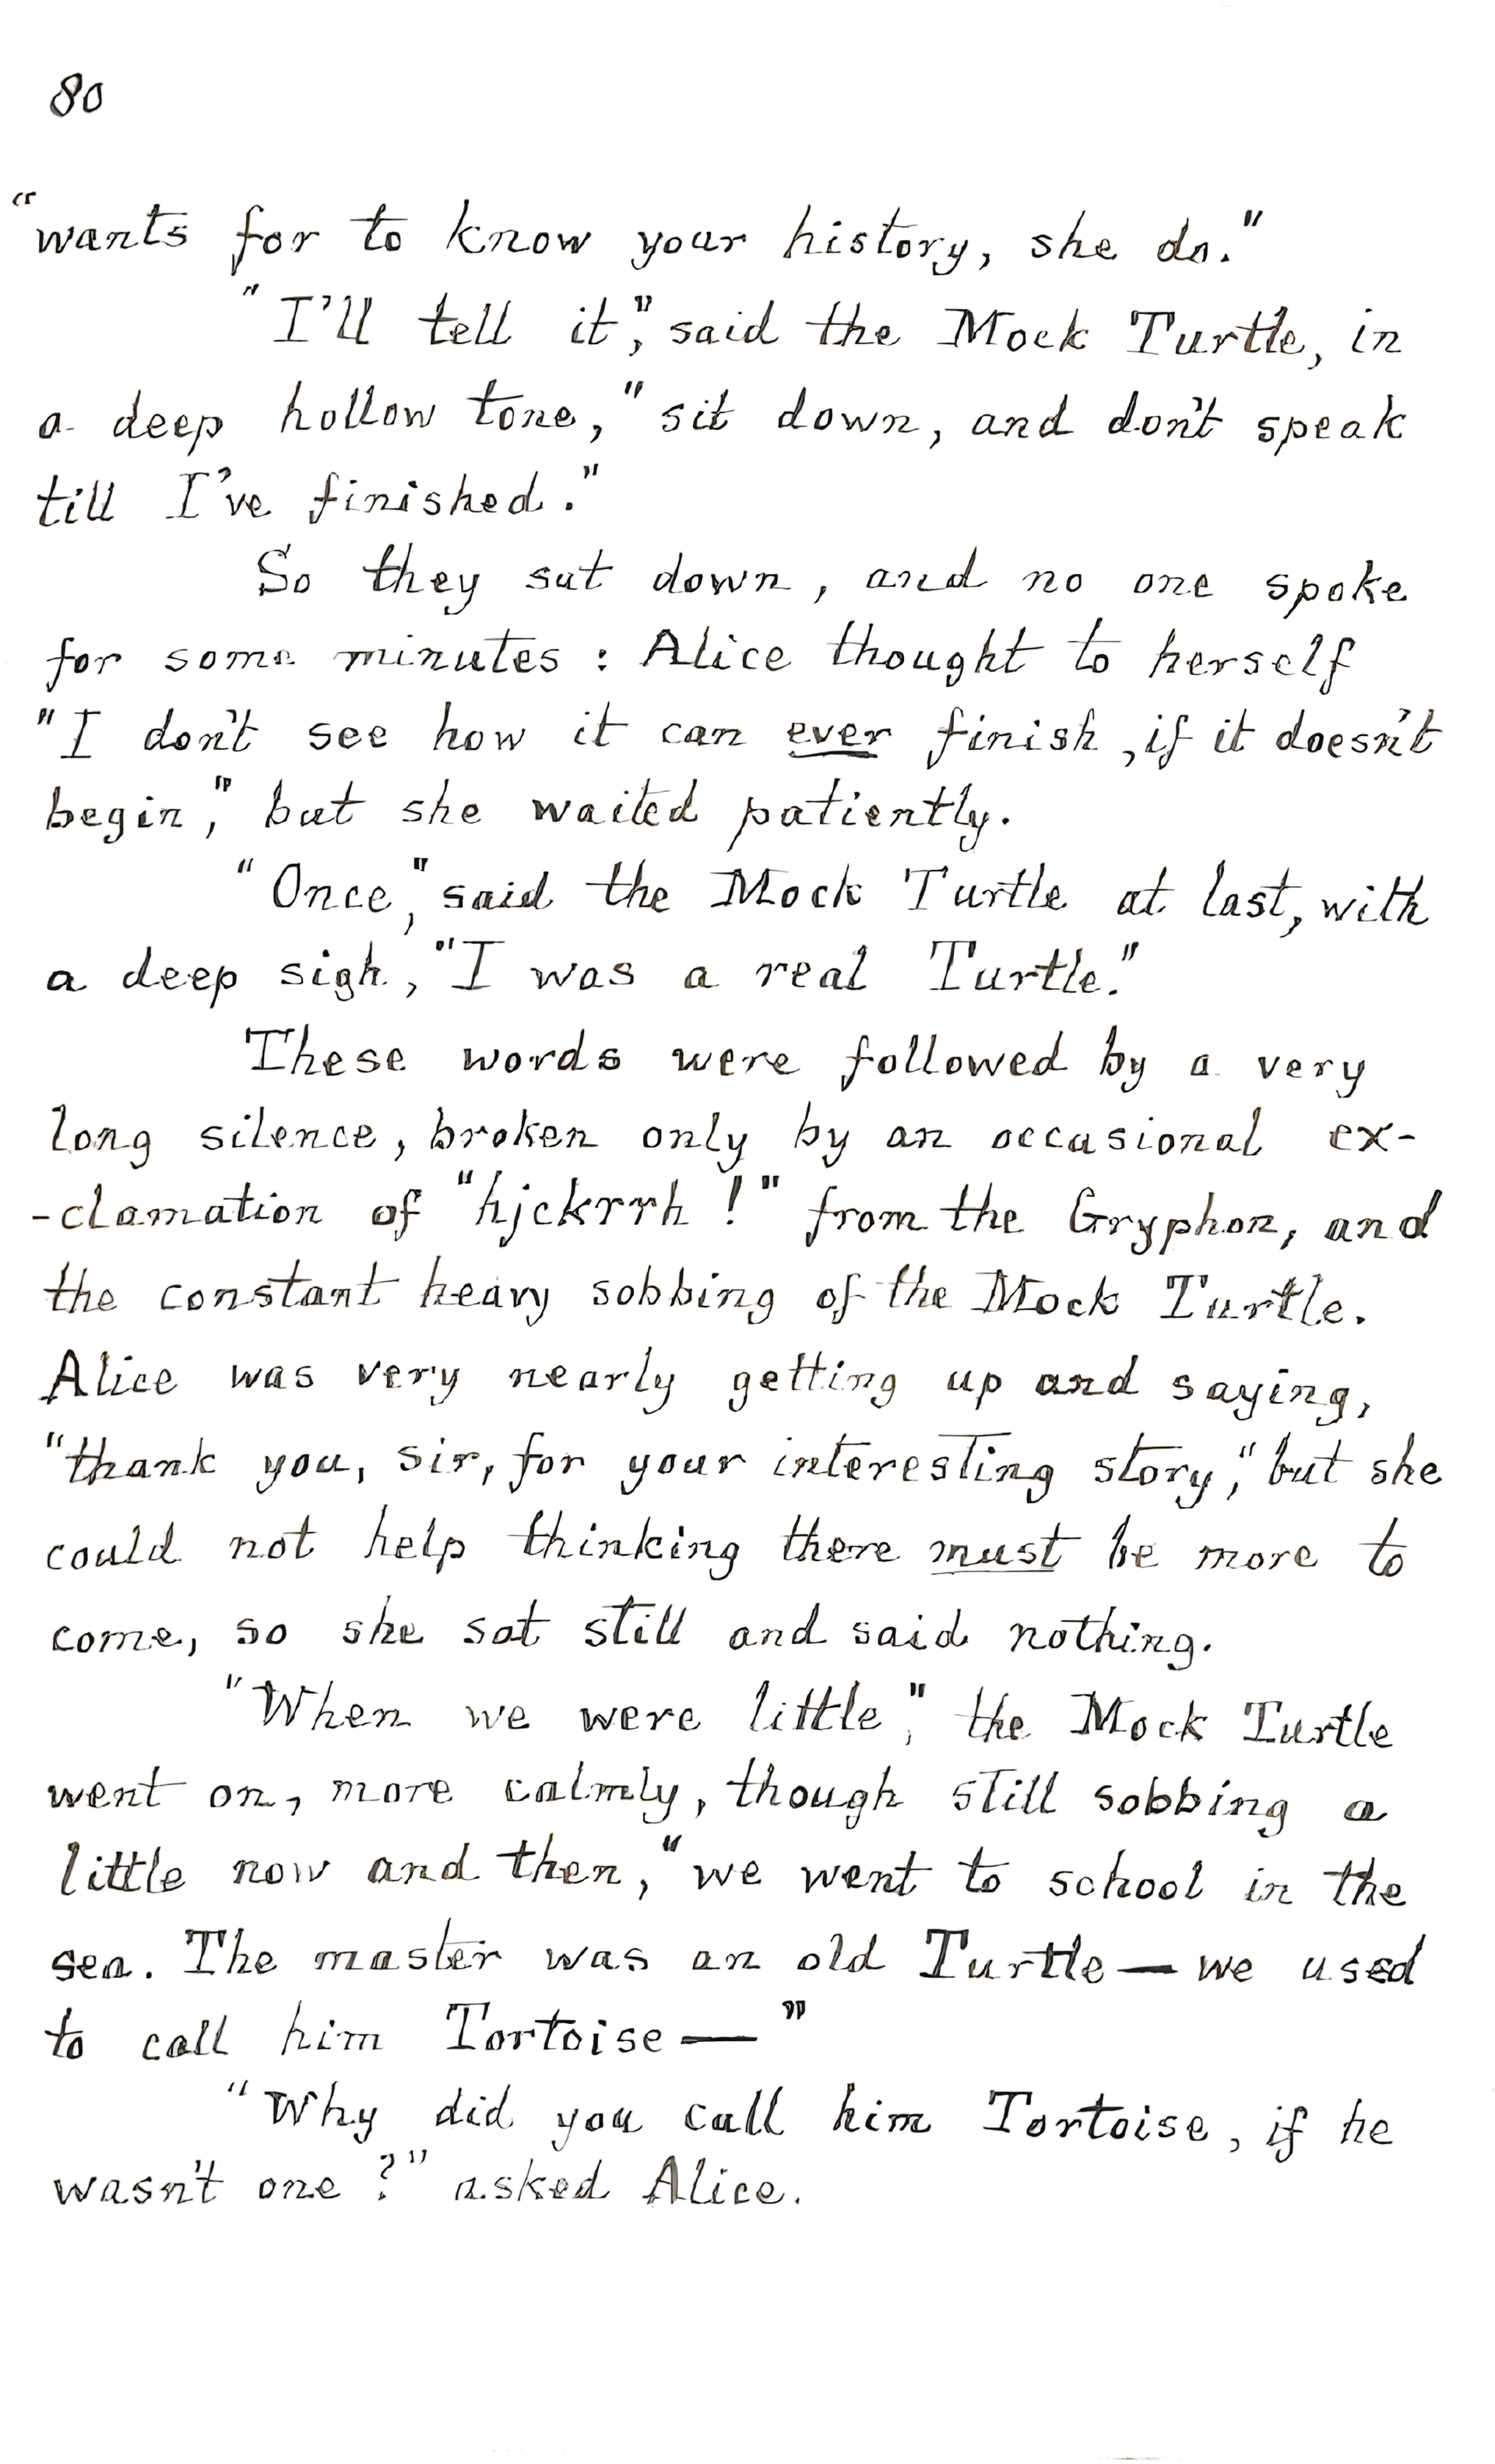 80
"wants for to know your history, she do."
"I'll tell it," said the Mock Turtle, in
a deep hollow tone, "sit down, and don't speak
till I've finished."
So they sat down, and no one spoke
for some minutes: Alice thought to herself
"I don't see how it can ever finish, if it doesn't
begin," but she waited patiently.
"Once," said the Mock Turtle at last, with
a deep sigh, "I was a real Turtle."
These words were followed by a very
long silence, broken only by an occasional ex-
-clamation of "hjckrrh!" from the Gryphon, and
the constant heavy sobbing of the Mock Turtle.
Alice was very nearly getting up and saying,
"thank you, sir, for your interesting story," but she
could not help thinking there must be more to
come, so she sat still and said nothing.
"When we were little," the Mock Turtle
went on, more calmly, though still sobbing a
little now and then, "we went to school in the
sea. The master was an old Turtle — we used
to call him Tortoise — "
"Why did you call him Tortoise, if he
wasn't one?" asked Alice.